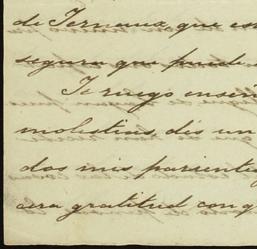 de Ternaux, que es
segura que puede
Te ruego enseñ
molestias, dés un
dos mis parientes
era gratitud con q